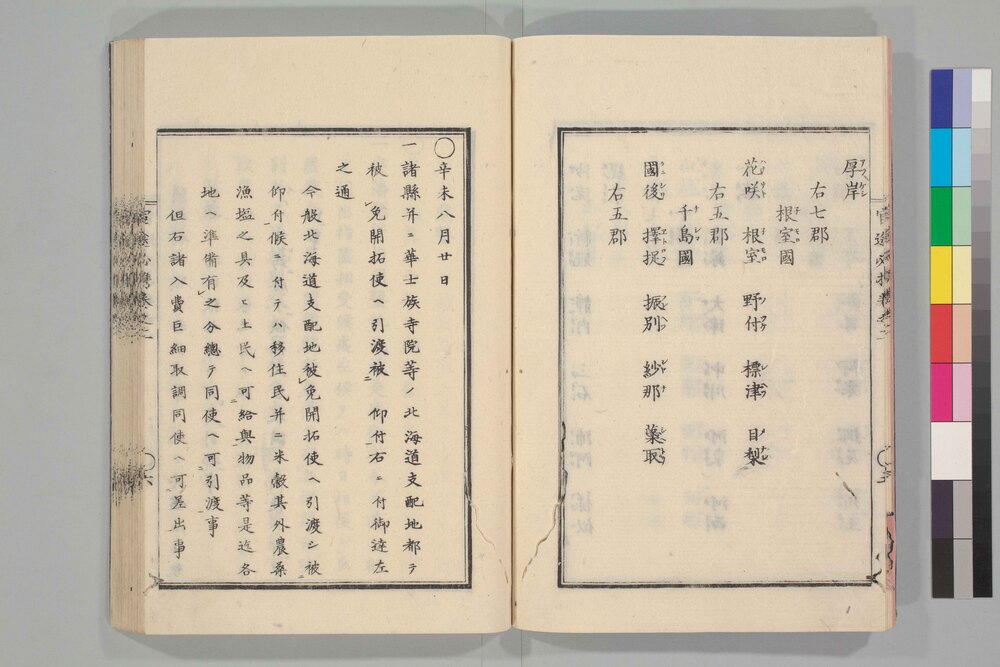 厚岸
右七郡
根室國
花咲 根室 野付 標津 目梨
右五郡
千島國
國後 擇捉 振別 紗那 蘂取
右五郡
〇辛未八月廿日
一諸縣并ニ華士族寺院等ノ北海道支配地都テ
被免開拓使ヘ引渡被仰付右ニ付御達左
之通
今般北海道支配地被免開拓使ヘ引渡シ被
仰付候ニ付テハ移住民并ニ米穀其外農桑
漁塩之具及ヒ土民ヘ可給與物品等是迄各
地ヘ準備有之分總テ同使ヘ可引渡事
但石諸入費巨細取調同使ヘ可差出事